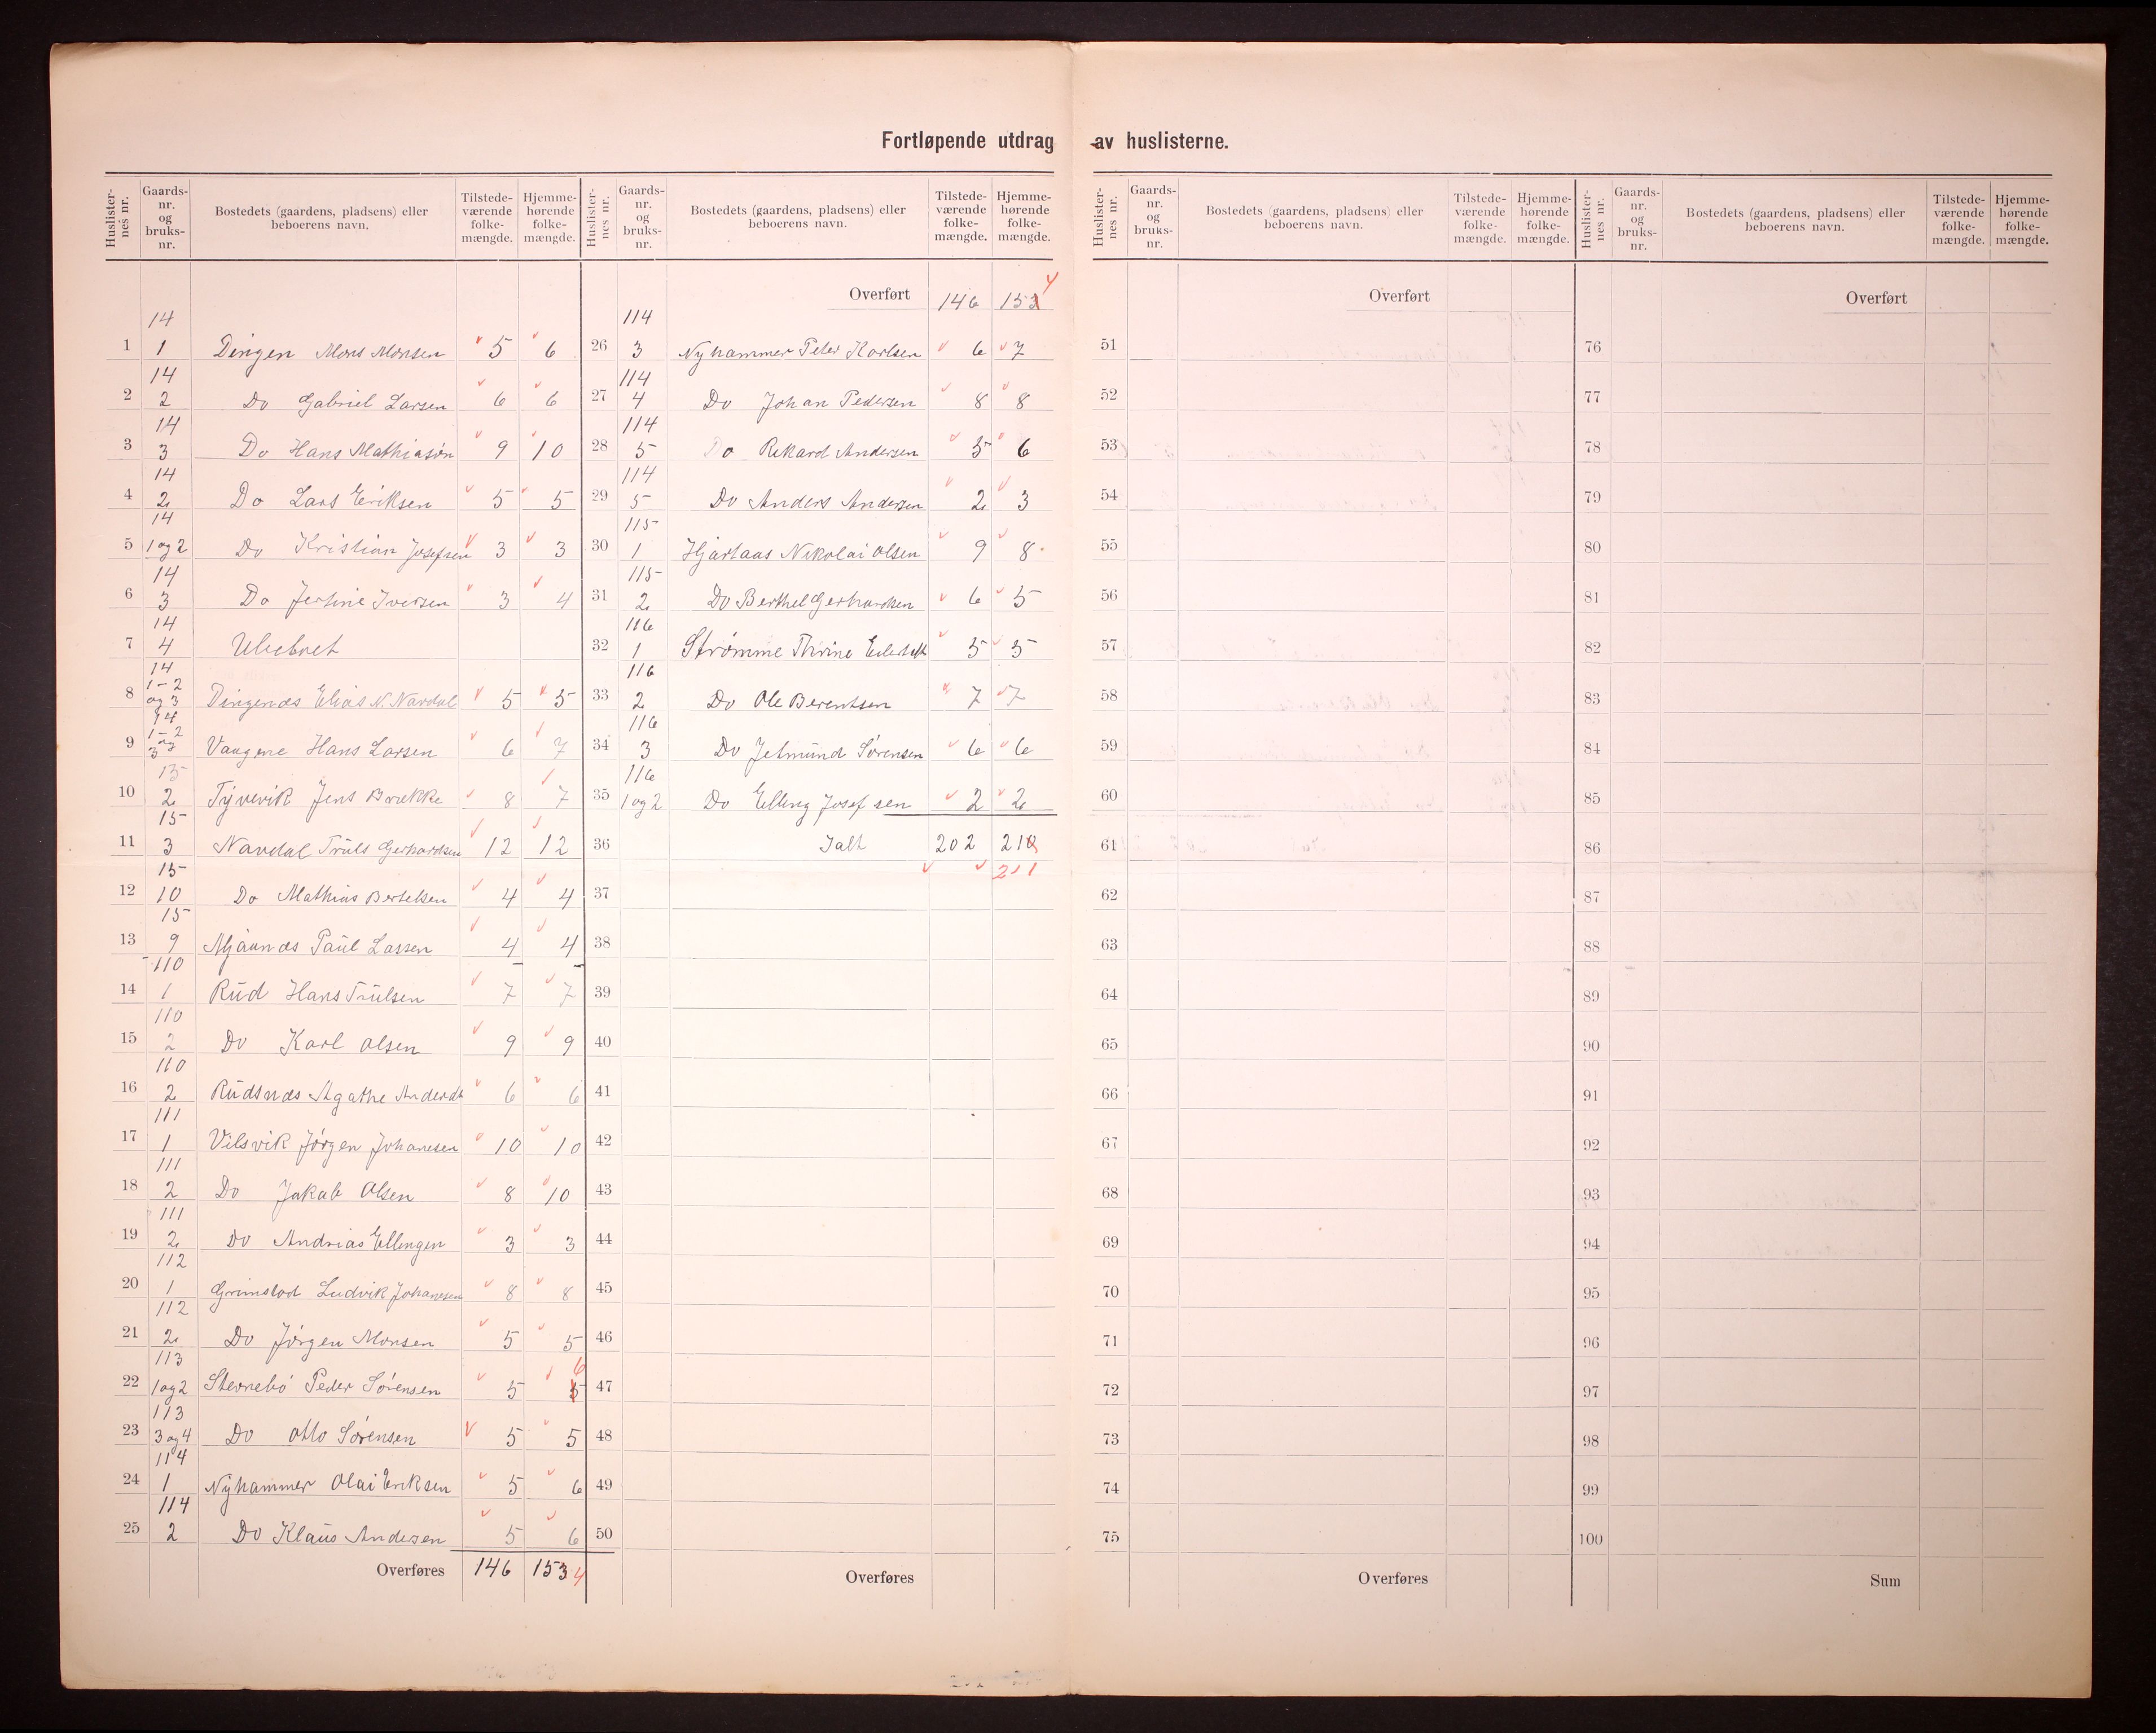 Fortløpende utdrag av huslisterne.
Huslisternes nr. Gaardsnr. og bruksnr. Bostedets (gaardens, pladsens) eller beboerens navn. Tilstedeværende folkemængde. Hjemmehørende folkemængde.
14
1 1 Dingen Mons Monsen 5 6
14
2 2 Do Gabriel Larsen 6 6
14
3 3 Do Hans Mathiasøn 9 10
14
4 2 Do Lars Eriksen 5 5
14
5 1 og 2 Do Kristian Josefsen 3 3
14
6 3 Do Jertine Iversen 3 4
14
7 4 Ubeboet
14
1-2
8 og 3 Dingenæs Elias N. Nardal 5 5
14
1-2 og
9 3 Vaagene Hans Larsen 6 7
15
10 2 Tyvevik Jens Brække 8 7
15
11 3 Navdal Truls Gerhardsen 12 12
15
12 10 Do Mathias Bertelsen 4 4
15
13 9 Mjaanæs Paul Lassen 4 4
110
14 1 Rud Hans Trulsen 7 7
110
15 2 Do Karl Olsen 9 9
110
16 2 Rudsnæs Agathe Andersd 6 6
111
17 1 Vilsvik Jørgen Johanesen 10 10
111
18 2 Do Jakab Olsen 8 10
111
19 2 Do Andrias Ellingen 3 3
112
20 1 Grimstad Ludvik Johanesen 8 8
112
21 2 Do Jørgen Monsen 5 5
113
22 1 og 2 Sternebø Peder Sørensen 5 5 6
113
23 3 og 4 Do Otto Sørensen 5 5
114
24 1 Nyhammer Olai Eriksen 5 6
114
25 2 Do Klaus Andersen 5 6
Overføres 146 153 4
Huslisternes nr. Gaardsnr. og bruksnr. Bostedets (gaardens, pladsens) eller beboerens navn. Tilstedeværende folkemængde. Hjemmehørende folkemængde.
Overført 146 153 4
114
26 3 Nyhammer Peder Karlsen 6 7
114
27 4 Do Johan Pedersen 8 8
114
28 5 Do Rikard Andersen 5 6
114
29 5 Do Anders Andersen 2 3
115
30 1 Hjartaas Nikolai Olsen 9 8
115
31 2 Do Berthel Gerhardsen 6 5
116
32 1 Strømme Thrine 5 5
116
33 2 Do Ole Berentsen 7 7
116
34 3 Do Jetmund Sørensen 6 6
116
35 1 og 2 Do Elling Josefsen 2 2
36 Ialt 202 210
211
37
38
39
40
41
42
43
44
45
46
47
48
49
50
Overføres
Huslisternes nr. Gaardsnr. og bruksnr. Bostedets (gaardens, pladsens) eller beboerens navn. Tilstedeværende folkemængde. Hjemmehørende folkemængde.
Overført
51
52
53
54
55
56
57
58
59
60
61
62
63
64
65
66
67
68
69
70
71
72
73
74
75
Overføres
Huslisternes nr. Gaardsnr. og bruksnr. Bostedets (gaardens, pladsens) eller beboerens navn. Tilstedeværende folkemængde. Hjemmehørende folkemængde.
Overført
76
77
78
79
80
81
82
83
84
85
86
87
88
89
90
91
92
93
94
95
96
97
98
99
100
Sum